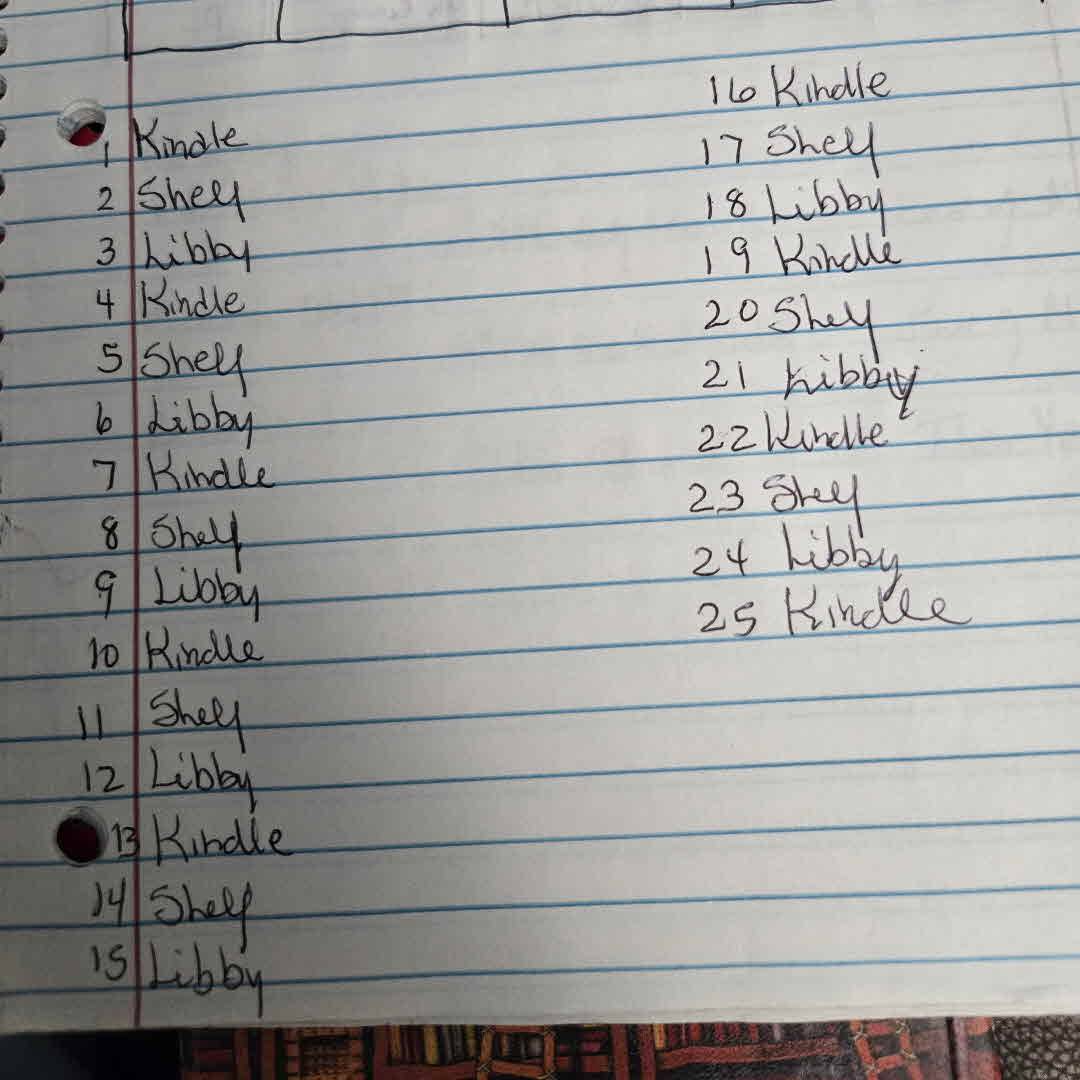 1 Kindle
2 Shelf
3 Libby
4 Kindle
5 Shelf
6 Libby
7 Kindle
8 Shelf
9 Libby
10 Kindle
11 Shelf
12 Libby
13 Kindle
14 Shelf
15 Libby
16 Kindle
17 Shelf
18 Libby
19 Kindle
20 Shelf
21 Libby
22 Kindle
23 Shelf
24 Libby
25 Kindle